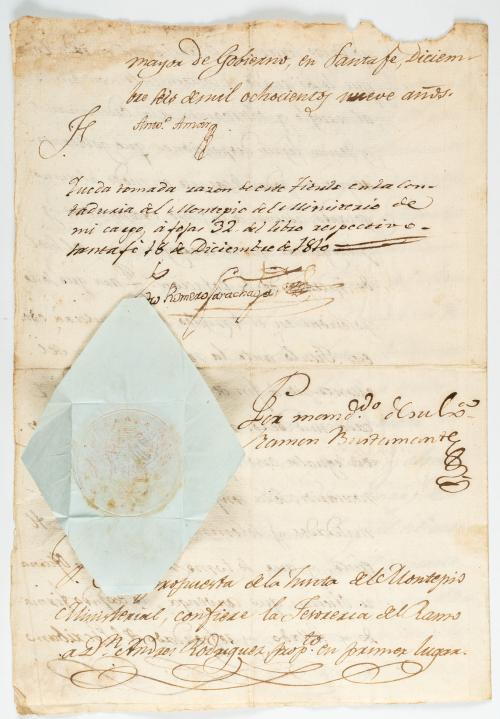 mayor de Gobierno, en Santafé, Diciem-
bre seis de mil ochocientos nueve años.
Anto. Amar
Queda tomada razon de este Titulo en la Con-
taduria del Montepio del Ministerio de
mi cargo, à fojas 32 del libro respectivo
Santafé 18 de Diciembre de 1810
Romero Sarachaga
Por mand.do de su Exa
Ramon Bustamante
propuesta de la Junta del Montepio
Ministerial, confiere la Tesoreria del Ramo
a Dn. Andres Rodriguez, prop.to en primer lugar.